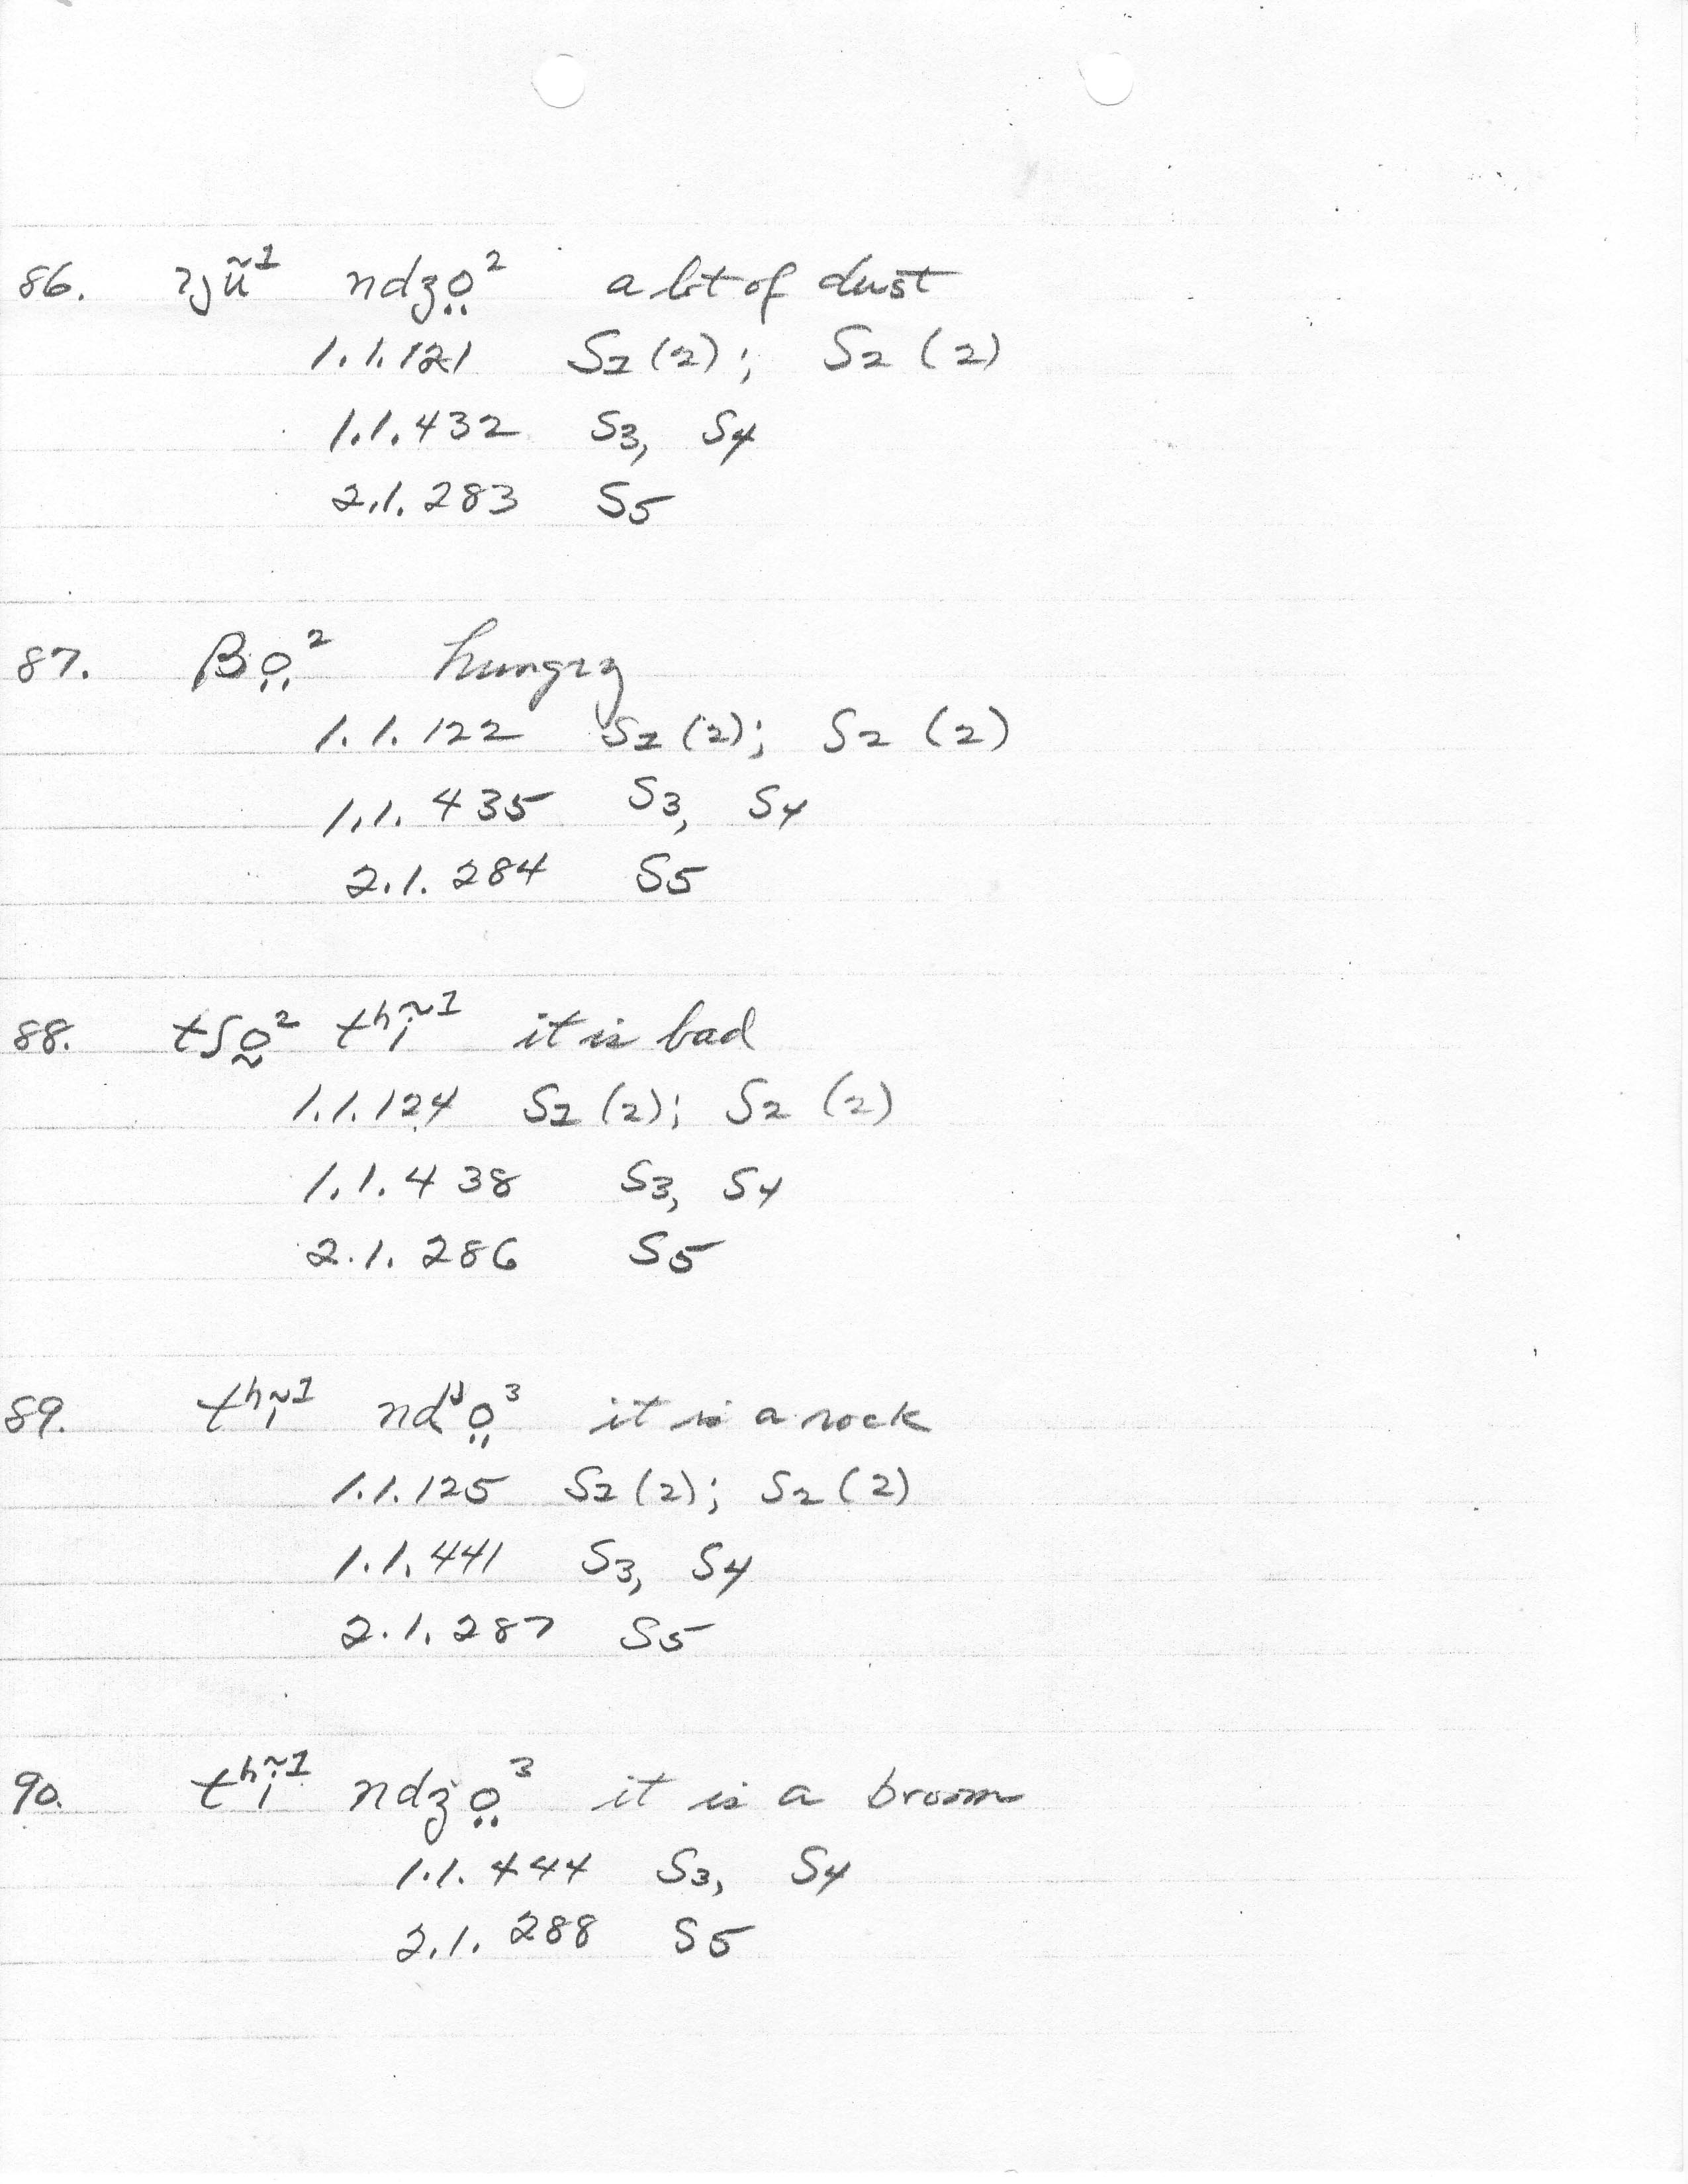 86. ʔȷũ¹ ndzo̤² a lot of dust
1.1.121 S1 (2); S2 (2)
1.1.432 S3, S4
2.1.283 S5
87. βo̤² hungry
1.1.122 S1 (2); S2 (2)
1.1.435 S3, S4
2.1.284 S5
88. tʃo̰² tʰĩ¹ it is bad
1.1.124 S1 (2); S2 (2)
1.1.438 S3, S4
2.1.286 S5
89. tʰĩ¹ ndʲo̤³ it is a rock
1.1.125 S1 (2); S2 (2)
1.1.441 S3, S4
2.1.287 S5
90. tʰĩ¹ ndzo̤³ it is a broom
1.1.444 S3, S4
2.1.288 S5